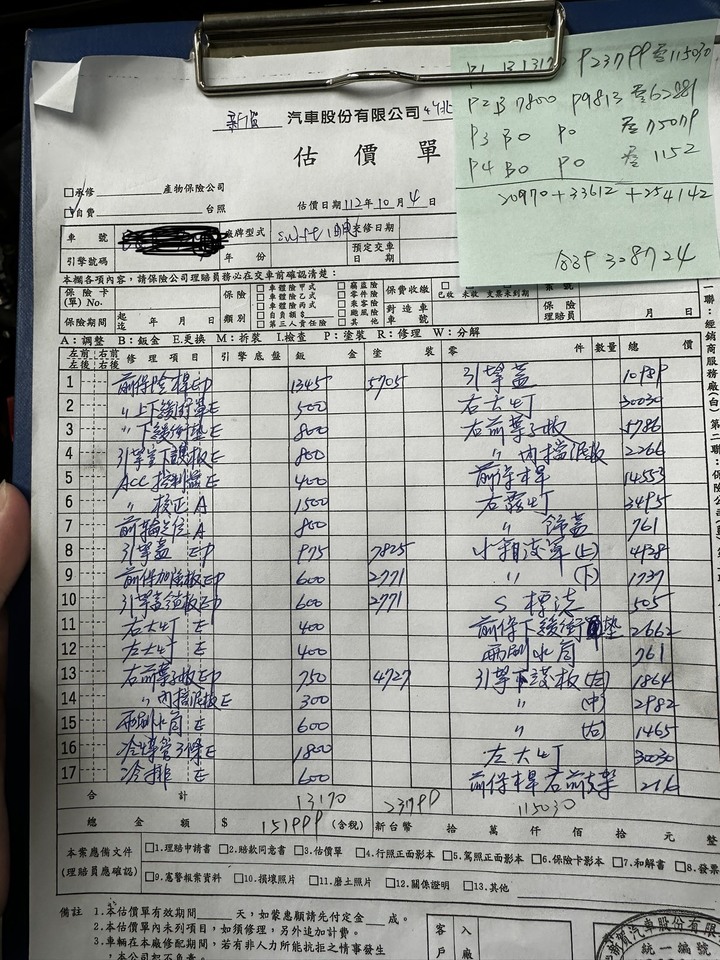 P1 B 13170 P23799 零115030
P2 B 7800 P9813 零62881
P3 B0 P0 零75079
P4 B0 P0 零1152
20970+33612+254142
合計 308724
新賀 汽車股份有限公司
估價單
□承修 產物保險公司
□自費 台照
估價日期112年10月4日
車號 廠牌型式 swift 交修日期
引擎號碼 年份 預定交車日期
本欄各項內容,請保險公司理賠員務必在交車前確認清楚:
保險卡(單) No. 保險類別 □車體險甲式 □竊盜險 保費收繳 已收 未收 支票未到期
□車體險乙式 □零件險
□車體險丙式 □乘客險 對造車車號 保險理賠員 月 日
保險期間 起迄 年 月 日 □自負額$ □颱風險
□第三人責任險 □其他
A:調整 B:鈑金 E.更換 M:拆裝 I.檢查 P:塗裝 R:修理 W:分解
左前左後 右前右後 修理項目 引擎底盤 鈑金 塗裝 零件 數量 總價
1 前保險桿EP 1345 5705 引擎蓋 10989
2 〃上下緩衝罩E 500 右大灯 30030
3 〃下緩衝墊E 800 右前葉子板 5786
4 引擎室下護板E 800 〃內擋泥板 2266
5 ACC控制器E 400 前保桿 14553
6 〃 校正A 1500 右霧灯 3495
7 前輪定位A 800 〃 飾蓋 761
8 引擎蓋 EP 975 7825 水箱渡罩(上) 4938
9 前保加強板EP 600 2771 〃 (下) 1737
10 引擎蓋鎖板EP 600 2771 S標誌 505
11 右大灯 E 400 前保下緩衝墊 2662
12 左大灯 E 400 雨刷水筒 761
13 右前葉子板EP 750 4727 引擎下護板(左) 1864
14 〃內擋泥板E 300 〃 (中) 2982
15 雨刷水筒E 600 〃 (右) 1465
16 冷媒管3條E 1800 左大灯 30030
17 冷排 E 600 前保桿右前支架 216
合計 13170 23799 115030
總金額 $ 151999 (含稅) 新台幣 拾 萬 仟 佰 拾 元 整
本案應備文件(理賠員應確認) □1.理賠申請書 □2.賠款同意書 □3.估價單 □4.行照正面影本 □5.駕照正面影本 □6.保險卡影本 □7.和解書 □8.發票
□9.憲警報案資料 □10.損壞照片 □11.磨土照片 □12.關係證明 □13.其他
備註 1.本估價單有效期間 天,如蒙惠顧請先付定金 成。
2.本估價單內未列項目,如須修理,另外追加計費。
3.車輛在本廠修配期間,若有非人力所能抗拒之情事發生
,本公司恕不負責。
客戶
入廠
新賀汽車股份有限
統一編號